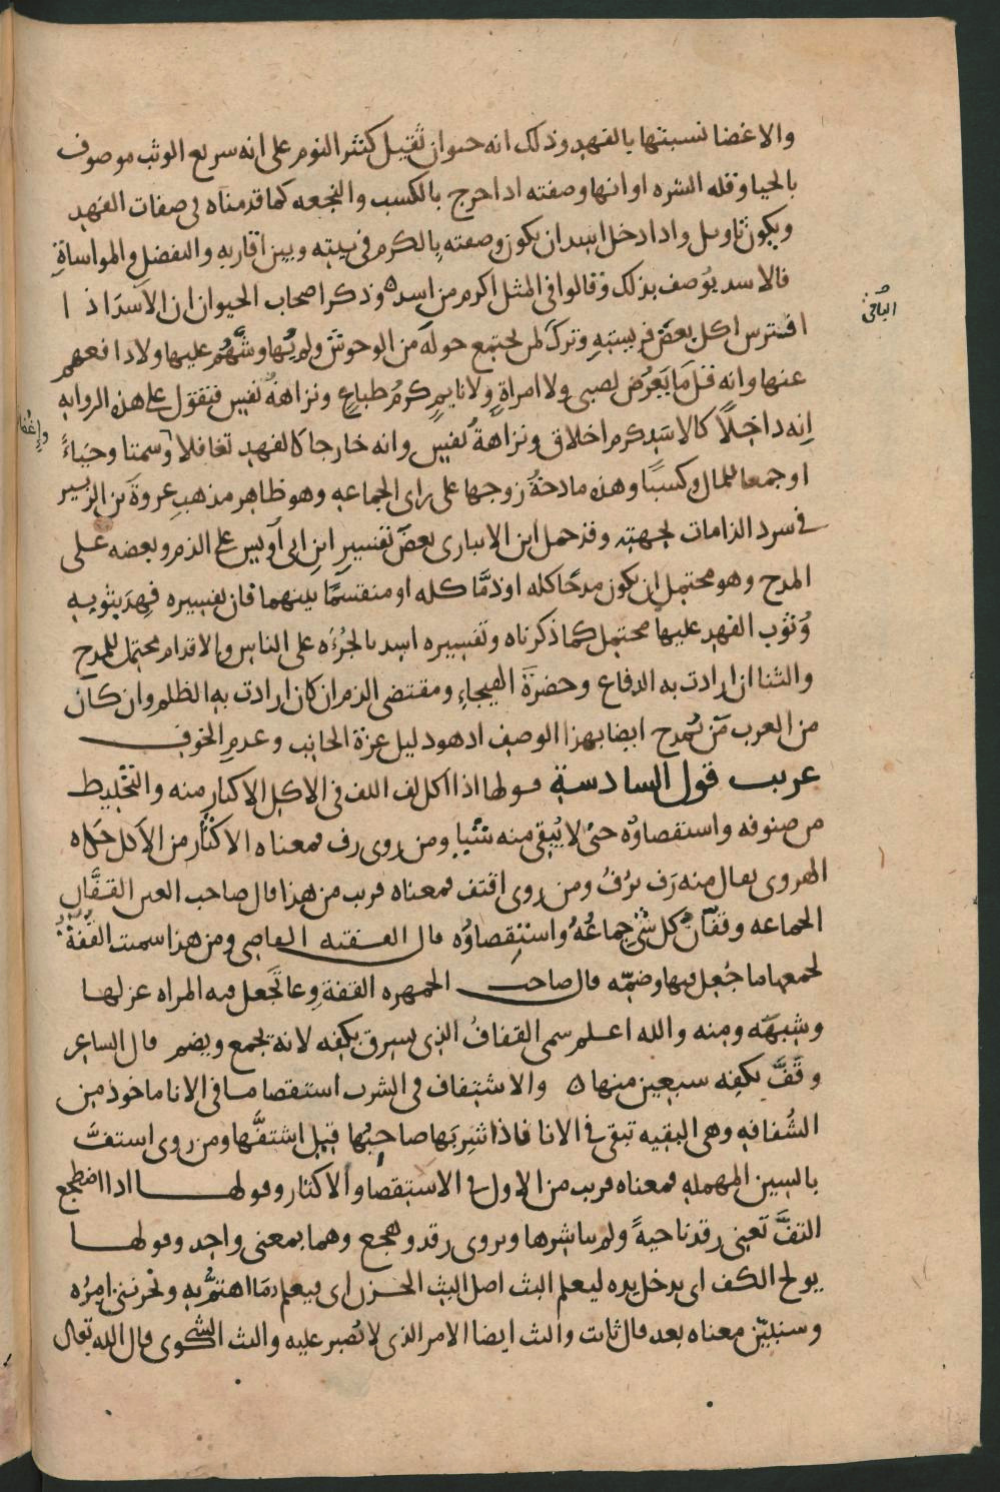 والاغضا نسبتها بالفهد وذلك انه حيوان ثقيل كثير النوم على انه سريع الوثب موصوف
بالحيا وقله الشره او انها وصفته اذا خرج بالكسب والنجعه كما قدمناه في صفات الفهد
ويكون تاويل واذا دخل اسد ان يكون وصفته بالكرم في بيته وبين اقاربه والتفضل والمواساة
فالاسد يوصف بذلك وقالوا في المثل اكرم من اسد ه وذكر اصحاب الحيوان ان الاسد اذ ا
افترس اكل بعض فريسته وترك لمن يجتمع حوله من الوحوش ولم يهاوشهم عليها ولا دافعهم
عنها وانه قل ما يعرض لصبي ولا امراة ولا نايم كرم طباع ونزاهة نفس فتقول على هذه الروايه
انه داخلا كالاسد كرم اخلاق ونزاهة نفس وانه خارجا كالفهد تغافلا وسمتا وحياء
او جمعا للمال وكسبا وهذه مادحة زوجها على راى الجماعه وهو ظاهر مذهب عروة بن الزبير
في سرد الذامات لجهته وقد حمل ابن الانبارى بعض تفسير ابن ابى اويس على الذم وبعضه على
المدح وهو محتمل ان يكون مدحا كله او ذما كله او منقسما بينهما فان تفسيره فهد بثوبه
وثوب الفهد عليها محتمل كما ذكرناه وتفسيره اسد بالجرءه على الناس والاقدام محتمل للمدح
والثنا ان ارادت به الدفاع وحضرة الهيجاء ومقتضى الذم ان كان ارادت به الظلم وان كان
من العرب من يمدح ايضا بهذا الوصف اذ هو دليل عزة الجانب وعدم الخوف
عربب قول السادسة قولها اذا اكل لف اللف في الاكل الاكثار منه والتخليط
من صنوفه واستقصاوه حتى لا يبقى منه شيا ومن روى رف فمعناه الاكثار من الاكل حكاه
الهروى يقال منه رف يرف ومن روى اقتف فمعناه قريب من هذا قال صاحب العين القفان
الجماعه وقفان كل شئ جماعه واستقصاوه قال الفقيه القاضى ومن هذا سميت القفة
لجمعها ما جعل فيها وضمه قال صاحب الجمهره القفة وعا تجعل فيه المراه غزلها
وشبهه ومنه والله اعلم سمى القفاف الذى يسرق بكفه لانه يجمع ويضم قال الشاعر
وقف بكفه سبعين منها ه والاشتفاف في الشرب استقصا ما في الانا ماخوذ من
الشفافه وهى البقيه تبقى في الانا فاذا شربها صاحبها قيل اشتفها ومن روى استف
بالسين المهمله فمعناه قريب من الاول في الاستقصا والاكثار وقولها اذا اضطجع
التف تعنى رقد ناحية ولم يباشرها ويروى رقد وهجع وهما بمعنى واحد وقولها
يولج الكف اى يدخل يده ليعلم البث اصل البث الحزن اى فيعلم ما اهتم به وتحزننى امره
وسنبين معناه بعد قال ثابت والبث ايضا الامر الذى لا يصبر عليه والبث الشكوى قال الله تعالى